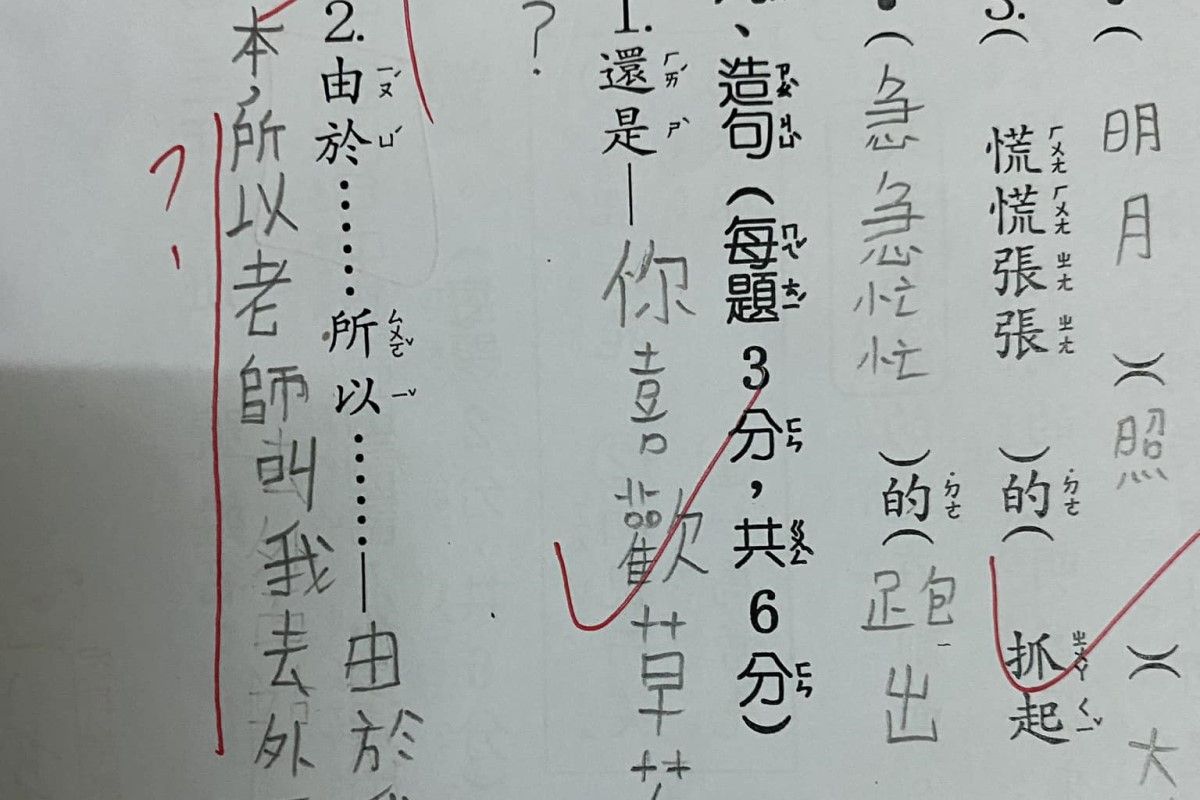 ( 明月 ) 照 ( 大
慌慌張張 ) 的 ( 抓起
( 急急忙忙 ) 的 ( 跑出
、造句(每題3分,共6分)
1. 還是—你喜歡草
?
2. 由於……所以……—由於
本,所以老師叫我去外
?